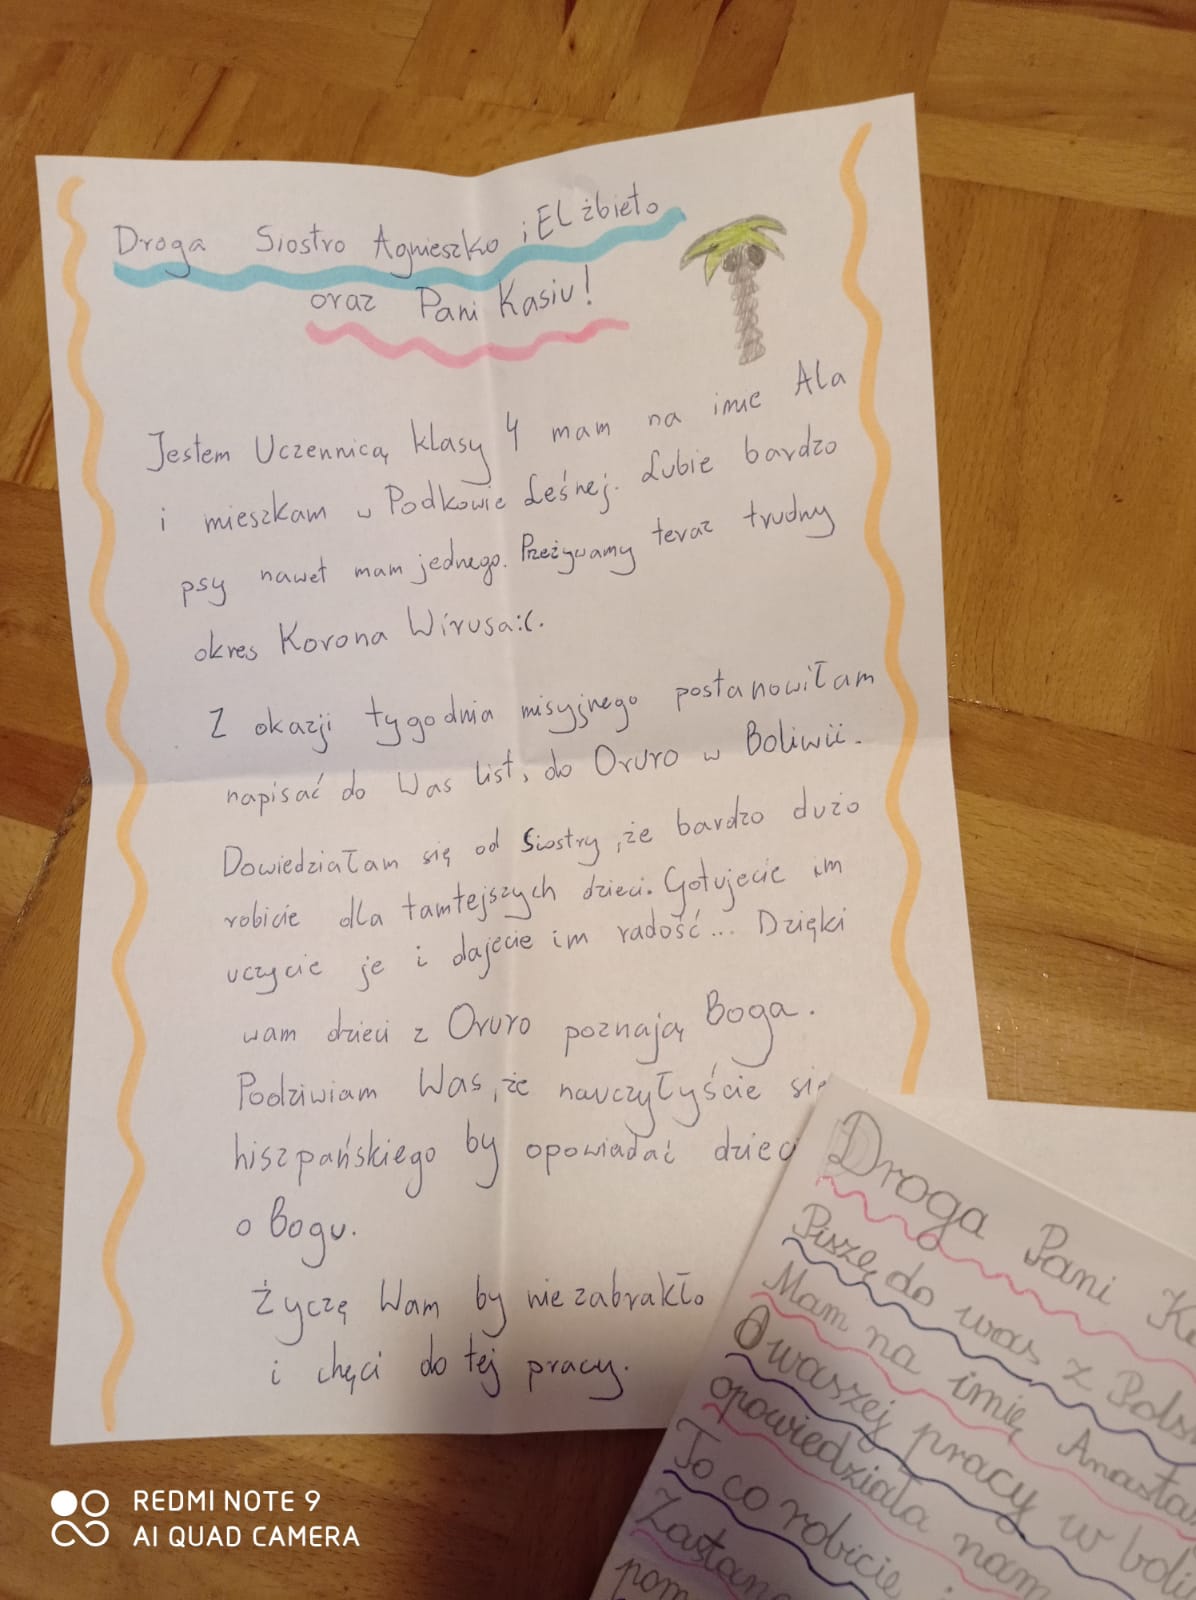 Droga Siostro Agnieszko i ELżbieto
oraz Pani Kasiu!
Jestem Uczennicą klasy 4 mam na imie Ala
i mieszkam w Podkowie Leśnej. Lubie bardzo
psy nawet mam jednego. Przeżywamy teraz trudny
okres Korona Wirusa:(.
Z okazji tygodnia misyjnego postanowiłam
napisać do Was list, do Oruro w Boliwii.
Dowiedziałam się od Siostry, że bardzo dużo
robicie dla tamtejszych dzieci. Gotujecie im
uczycie je i dajecie im radość... Dzięki
wam dzieci z Oruro poznają Boga.
Podziwiam Was, że nauczyłyście się
hiszpańskiego by opowiadać dzieci
o Bogu.
Życzę Wam by nie zabrakło
i chęci do tej pracy.
Droga Pani
Piszę do was z
Mam na imię
O waszej pracy w
opowiedziała nam
To co robicie
REDMI NOTE 9
AI QUAD CAMERA